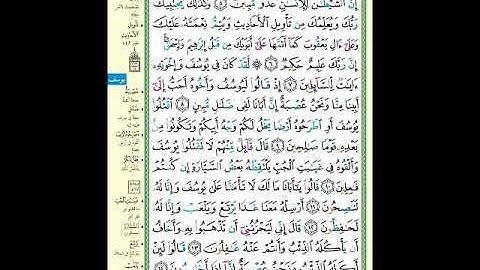 إِنَّ الشَّيْطَٰنَ لِلْإِنسَٰنِ عَدُوٌّ مُّبِينٌ ۝٥ وَكَذَٰلِكَ يَجْتَبِيكَ
رَبُّكَ وَيُعَلِّمُكَ مِن تَأْوِيلِ الْأَحَادِيثِ وَيُتِمُّ نِعْمَتَهُۥ عَلَيْكَ
وَعَلَىٰٓ ءَالِ يَعْقُوبَ كَمَآ أَتَمَّهَا عَلَىٰٓ أَبَوَيْكَ مِن قَبْلُ إِبْرَٰهِيمَ وَإِسْحَٰقَ
إِنَّ رَبَّكَ عَلِيمٌ حَكِيمٌ ۝٦ لَّقَدْ كَانَ فِي يُوسُفَ وَإِخْوَتِهِۦٓ
ءَايَٰتٌ لِّلسَّآئِلِينَ ۝٧ إِذْ قَالُوا لَيُوسُفُ وَأَخُوهُ أَحَبُّ إِلَىٰٓ
أَبِينَا مِنَّا وَنَحْنُ عُصْبَةٌ إِنَّ أَبَانَا لَفِي ضَلَٰلٍ مُّبِينٍ ۝٨ اقْتُلُوا
يُوسُفَ أَوِ اطْرَحُوهُ أَرْضًا يَخْلُ لَكُمْ وَجْهُ أَبِيكُمْ وَتَكُونُوا مِن
بَعْدِهِۦ قَوْمًا صَٰلِحِينَ ۝٩ قَالَ قَآئِلٌ مِّنْهُمْ لَا تَقْتُلُوا يُوسُفَ
وَأَلْقُوهُ فِي غَيَٰبَتِ الْجُبِّ يَلْتَقِطْهُ بَعْضُ السَّيَّارَةِ إِن كُنتُمْ
فَٰعِلِينَ ۝١٠ قَالُوا يَٰٓأَبَانَا مَا لَكَ لَا تَأْمَ۫نَّا عَلَىٰ يُوسُفَ وَإِنَّا لَهُۥ
لَنَٰصِحُونَ ۝١١ أَرْسِلْهُ مَعَنَا غَدًا يَرْتَعْ وَيَلْعَبْ وَإِنَّا لَهُۥ
لَحَٰفِظُونَ ۝١٢ قَالَ إِنِّي لَيَحْزُنُنِيٓ أَن تَذْهَبُوا بِهِۦ وَأَخَافُ
أَن يَأْكُلَهُ الذِّئْبُ وَأَنتُمْ عَنْهُ غَٰفِلُونَ ۝١٣ قَالُوا لَئِنْ
أَكَلَهُ الذِّئْبُ وَنَحْنُ عُصْبَةٌ إِنَّآ إِذًا لَّخَٰسِرُونَ ۝١٤
يوسف